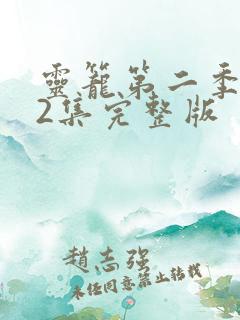 靈籠第二季
2集完整版
趙志强
未经同意禁止转载